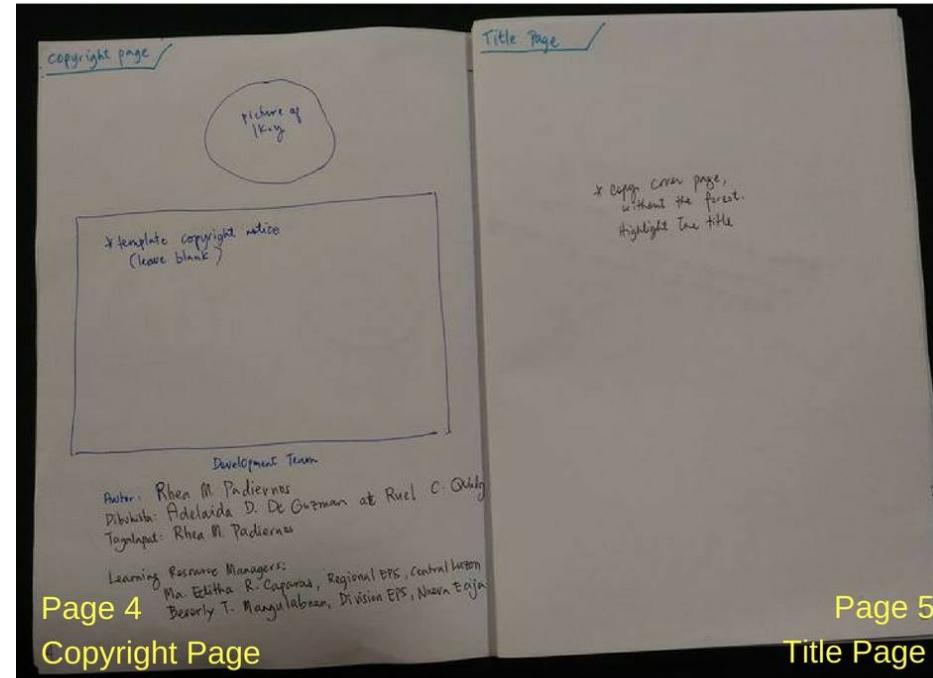 copyright page
picture of
* template copyright notice
(leave blank)
Development Team
Awtor: Rhea M. Padiernos
Dibuhista: Adelaida D. De Guzman at Ruel C.
Taganlapat: Rhea M. Padiernos
Learning Resource Managers:
Ma. Editha R. Caparas, Regional EPS, Central Luzon
Beverly T. Mangulabnan, Division EPS, Nueva Ecija
Page 4
Copyright Page
Title Page
* Copy cover page,
without the forest.
Highlight the title
Page 5
Title Page